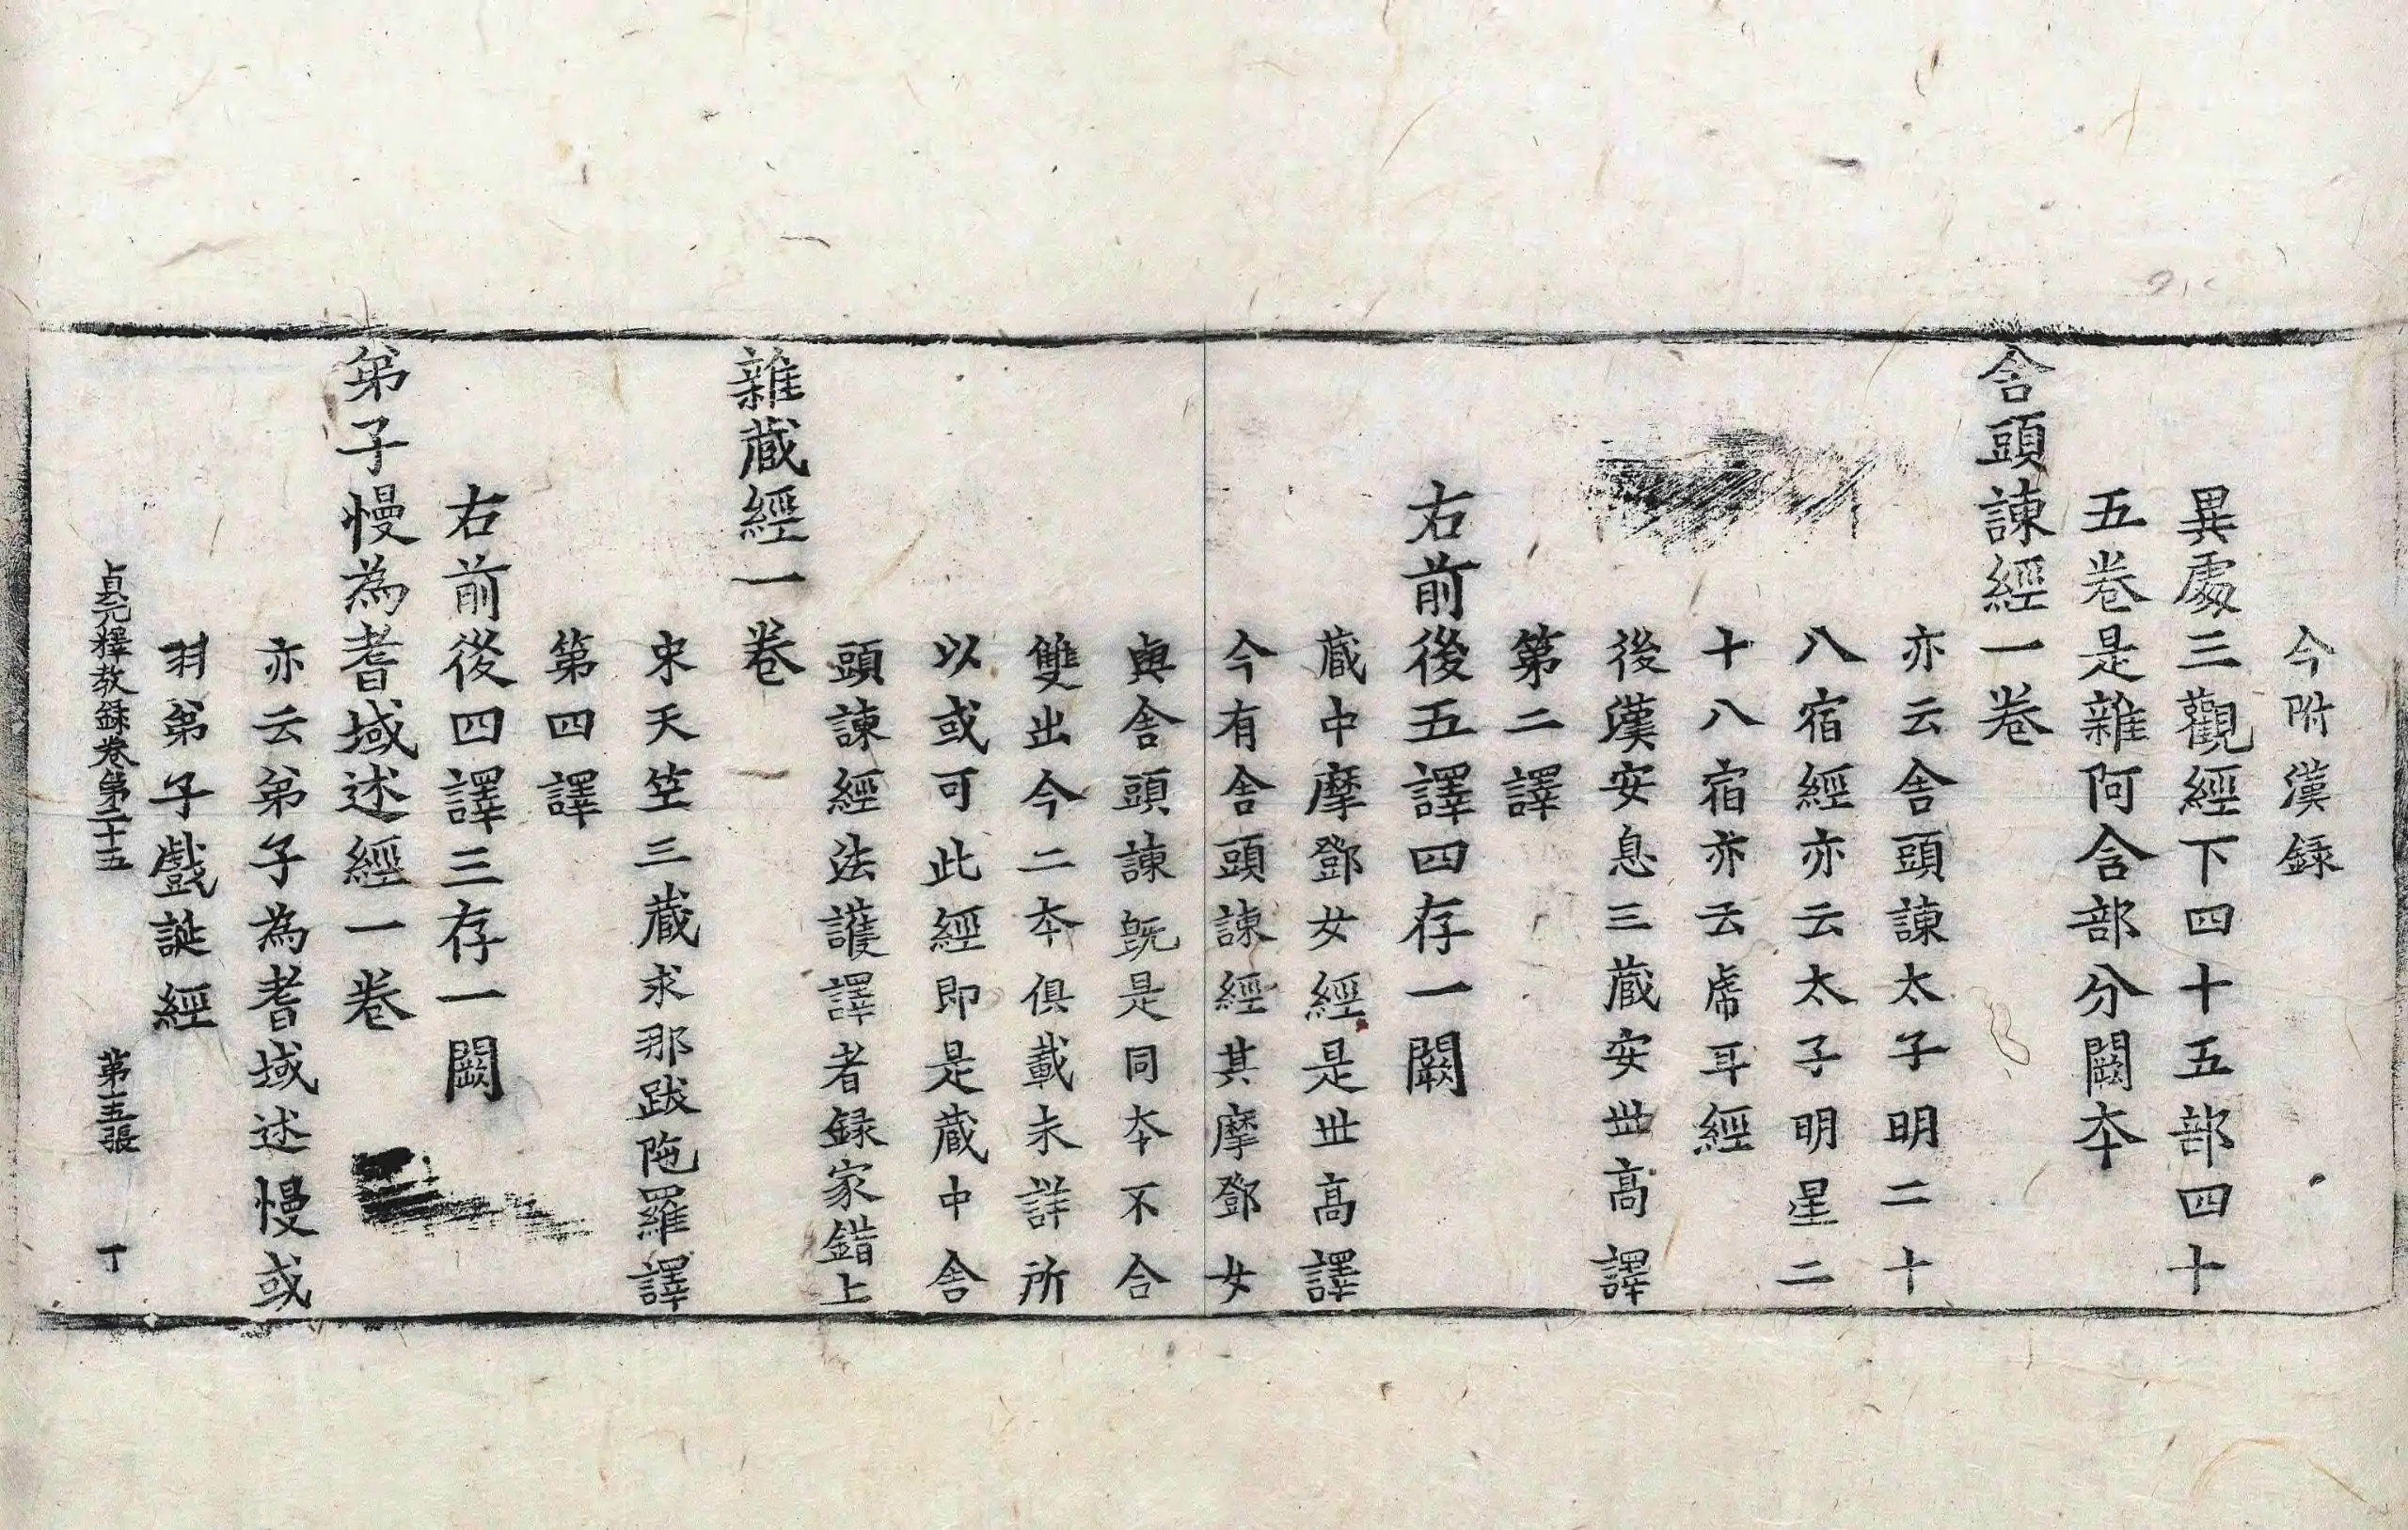 今附漢録
異處三觀經下四十五部四十
五卷是雜阿含部分闕夲
舎頭諫經一卷
亦云舎頭諫太子明二十
八宿經亦云太子明星二
十八宿亦云虎耳經
後漢安息三藏安丗高譯
第二譯
右前後五譯四存一闕
藏中摩鄧女經是丗高譯
今有舎頭諫經其摩鄧女
與舎頭諫旣是同夲不合
雙出今二夲俱載未詳所
以或可此經即是藏中舎
頭諫經法護譯者録家錯上
雜藏經一卷
宋天笁三藏求那跋陁羅譯
第四譯
右前後四譯三存一闕
弟子慢為耆域述經一卷
亦云弟子為耆域述慢或
弟子戲誕經
貞元釋教録卷第二十五 第十五張 丁